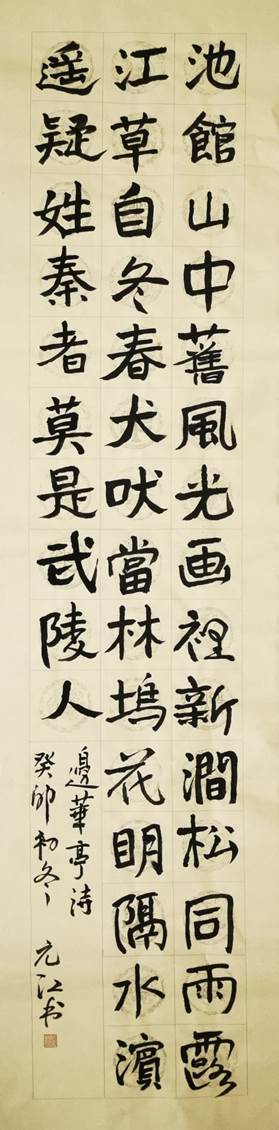 池館山中舊風光画裡新澗松同雨露
江草自冬春犬吠當林塢花明隔水濱
遥疑姓秦者莫是武陵人
邊華亭詩
癸卯初冬 元江书